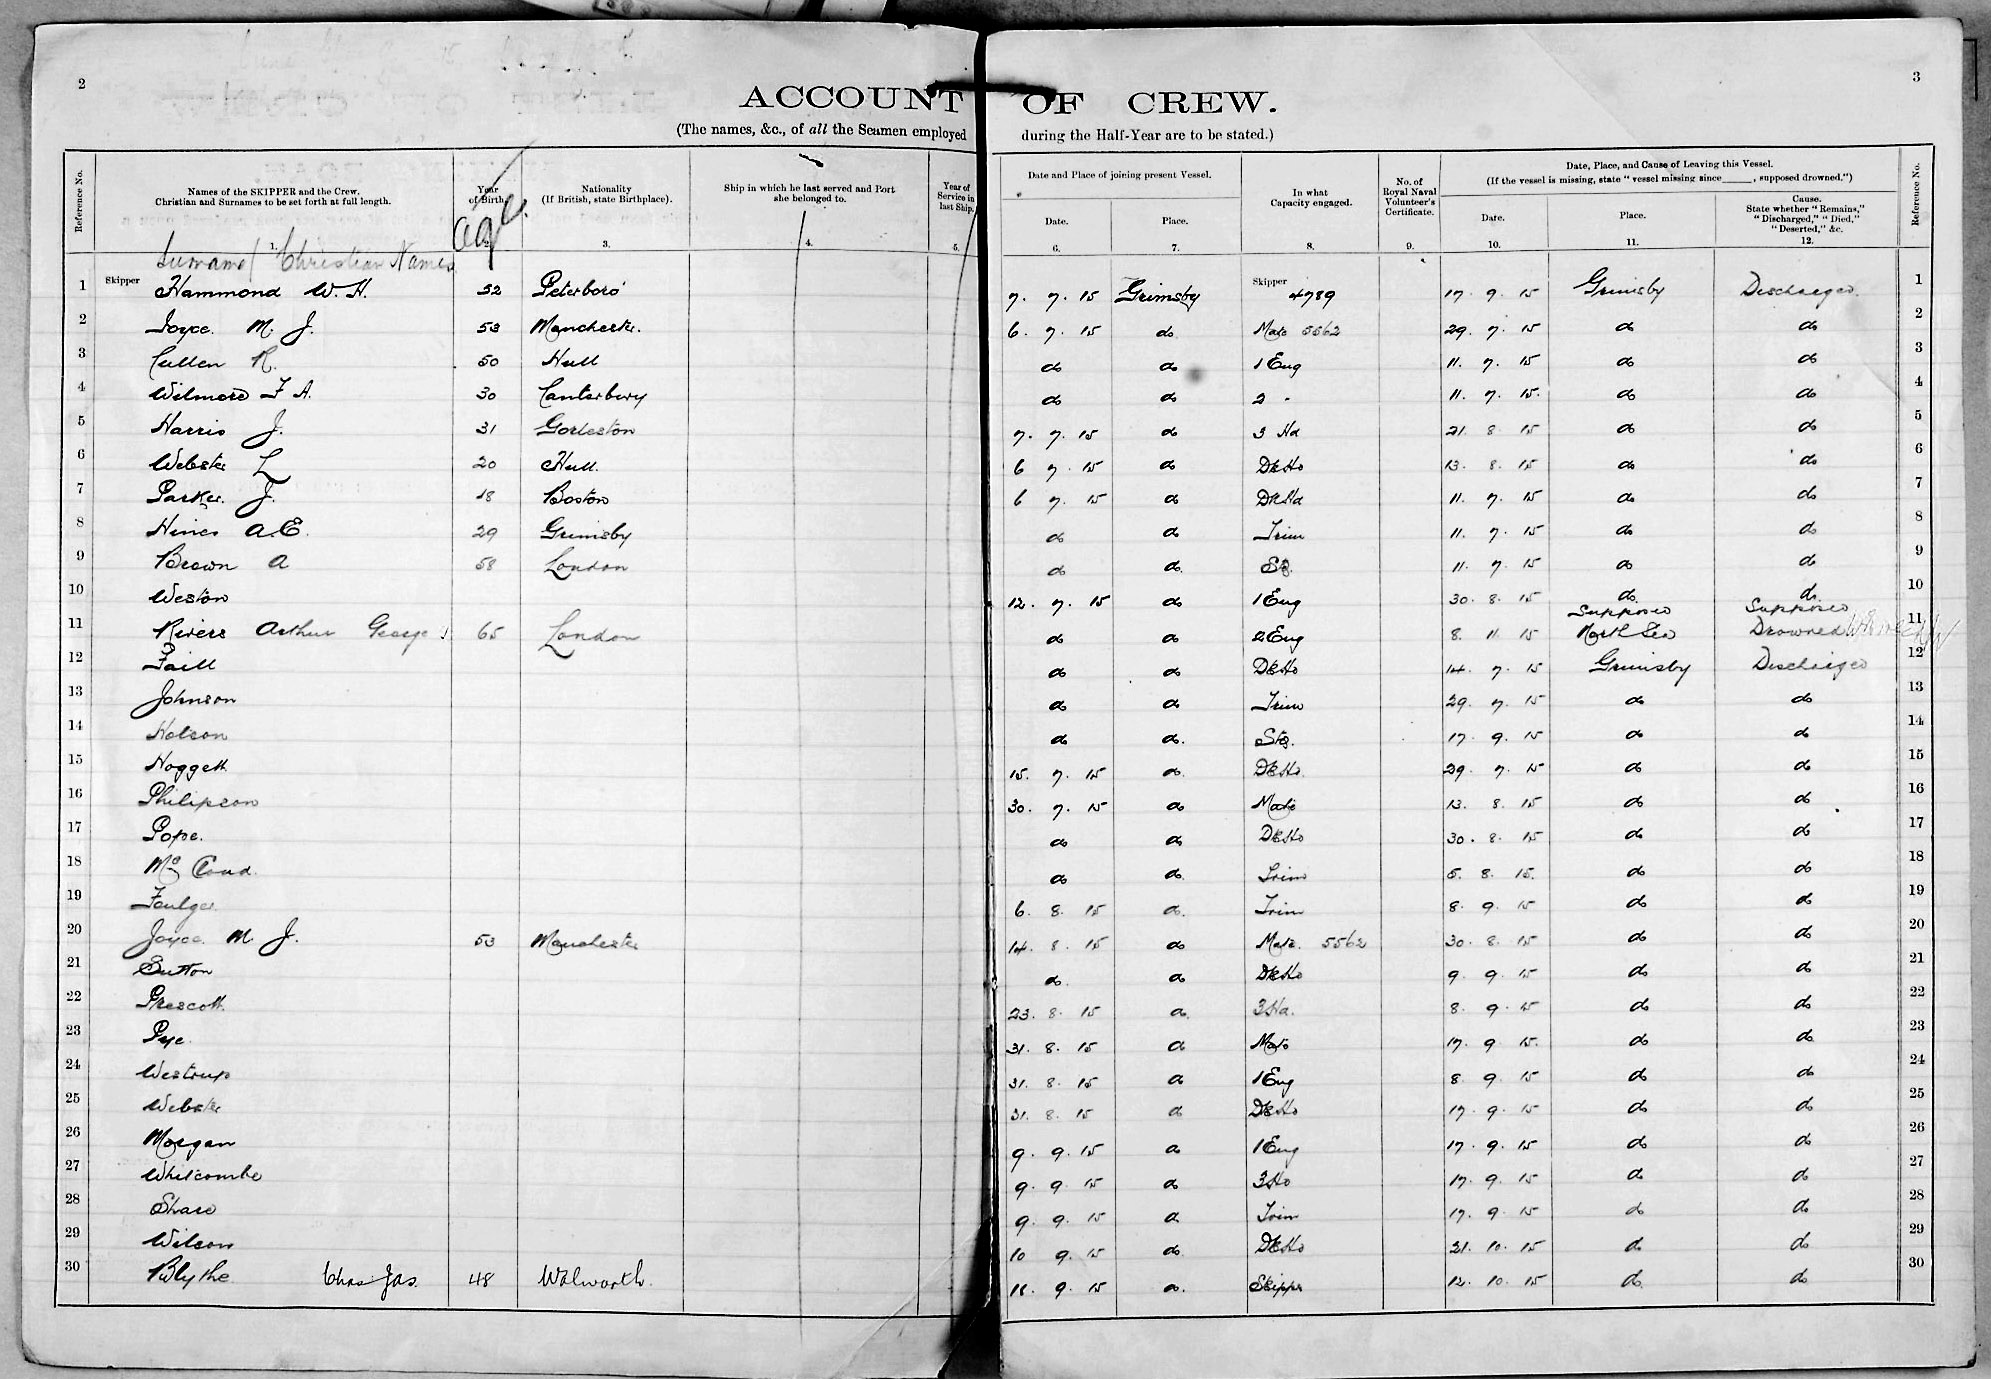 2
ACCOUNT OF CREW.
3
(The names, &c., of all the Seamen employed during the Half-Year are to be stated.)
Reference No.
Names of the SKIPPER and the Crew. Christian and Surnames to be set forth at full length.
1.
Surname / Christian Names
Year of Birth.
2.
age
Nationality (If British, state Birthplace).
3.
Ship in which he last served and Port she belonged to.
4.
Year of Service in last Ship.
5.
Date and Place of joining present Vessel.
Date.
6.
Place.
7.
In what Capacity engaged.
8.
No. of Royal Naval Volunteer's Certificate.
9.
Date, Place, and Cause of Leaving this Vessel.
(If the vessel is missing, state "vessel missing since _____, supposed drowned.")
Date.
10.
Place.
11.
Cause. State whether "Remains," "Discharged," "Died," "Deserted," &c.
12.
Reference No.
1 Skipper Hammond W. H. 52 Peterboro' 7. 7. 15 Grimsby Skipper 4789 17. 9. 15 Grimsby Discharged. 1
2 Joyce M. J. 53 Manchester. 6. 7. 15 do. Mate 5562 29. 7. 15 do do 2
3 Cullen R. 50 Hull do do 1 Eng 11. 7. 15 do do 3
4 Wilmore F A. 30 Canterbury do do 2 - 11. 7. 15. do do 4
5 Harris J. 31 Gorleston 7. 7. 15 do 3 Hd 21. 8. 15 do do 5
6 Webster L 20 Hull. 6 7. 15 do Dk Hd 13. 8. 15 do do 6
7 Parker. J. 18 Boston 6 7. 15 do Dk Hd 11. 7. 15 do do 7
8 Hines A.E. 29 Grimsby do do Trim 11. 7. 15 do do 8
9 Brown A 58 London do do. Stk. 11. 7. 15 do do 9
10 Weston 12. 7. 15 do 1 Eng 30. 8. 15 do. do. 10
11 Rivers Arthur George 65 London do do 2 Eng 8. 11. 15 Supposed North Sea Supposed Drowned 11
12 Faill do do Dk Hd 14. 7. 15 Grimsby Discharged 12
13 Johnson do do Trim 29. 7. 15 do do 13
14 Holson do do. Stk. 17. 9. 15 do do 14
15 Hoggett 15. 7. 15 do. Dk Hd. 29. 7. 15 do do 15
16 Philipson 30. 7. 15 do Mate 13. 8. 15 do do 16
17 Pope. do do Dk Hd 30. 8. 15 do do 17
18 Mc Coud. do do. Trim 5. 8. 15. do do 18
19 Foulger. 6. 8. 15 do. Trim 8. 9. 15 do do 19
20 Joyce. M J. 53 Manchester 14. 8. 15 do Mate. 5562 30. 8. 15 do do 20
21 Sutton do. do Dk Hd 9. 9. 15 do do 21
22 Prescott. 23. 8. 15 do. 3 Hd. 8. 9. 15 do do 22
23 Pye. 31. 8. 15 do Mate 17. 9. 15. do do 23
24 Westrup 31. 8. 15 do 1 Eng 8. 9. 15 do do 24
25 Webster 31. 8. 15 do Dk Hd 17. 9. 15 do do 25
26 Morgan 9. 9. 15 do 1 Eng 17. 9. 15 do do 26
27 Whitcombe 9. 9. 15 do 3 Hd 17. 9. 15 do do 27
28 Share 9. 9. 15 do Trim 17. 9. 15 do do 28
29 Wilson 10 9. 15 do. Dk Hd 21. 10. 15 do do 29
30 Blythe Chas Jas. 48 Walworth. 11. 9. 15 do. Skipper 12. 10. 15 do. do 30